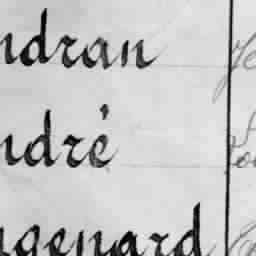 ndran
ndré
genard